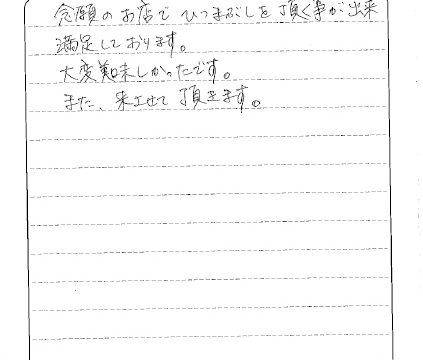 念願のお店でひつまぶしを頂く事が出来
満足しております。
大変美味しかったです。
また、来させて頂きます。